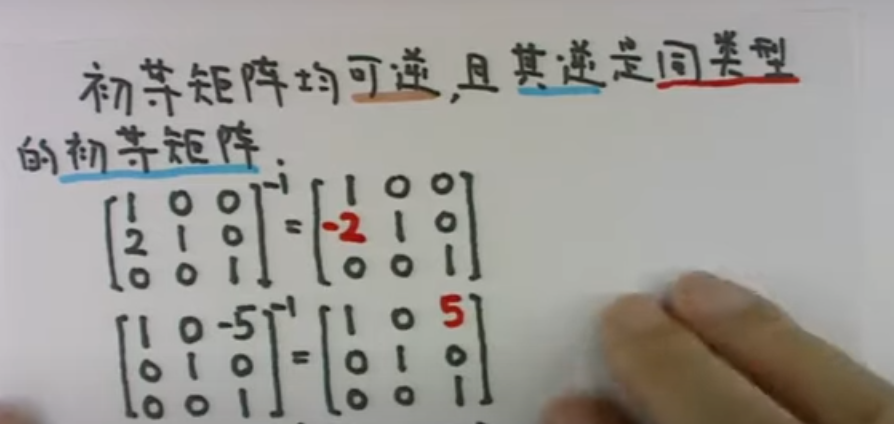 初等矩阵均可逆,且其逆是同类型
的初等矩阵.
[1 0 0; 2 1 0; 0 0 1]⁻¹ = [1 0 0; -2 1 0; 0 0 1]
[1 0 -5; 0 1 0; 0 0 1]⁻¹ = [1 0 5; 0 1 0; 0 0 1]